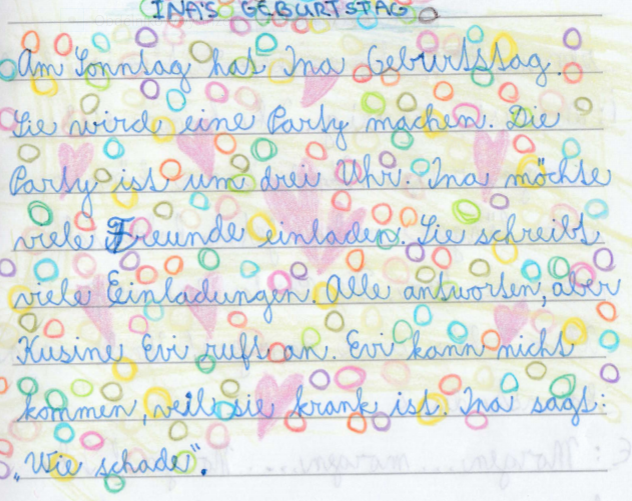 INA'S GEBURTSTAG
Am Sonntag hat Ina Geburtstag.
Sie wird eine Party machen. Die
Party ist um drei Uhr. Ina möchte
viele Freunde einladen. Sie schreibt
viele Einladungen. Alle antworten, aber
Kusine Evi ruft an. Evi kann nicht
kommen, weil sie krank ist. Ina sagt:
„Wie schade".